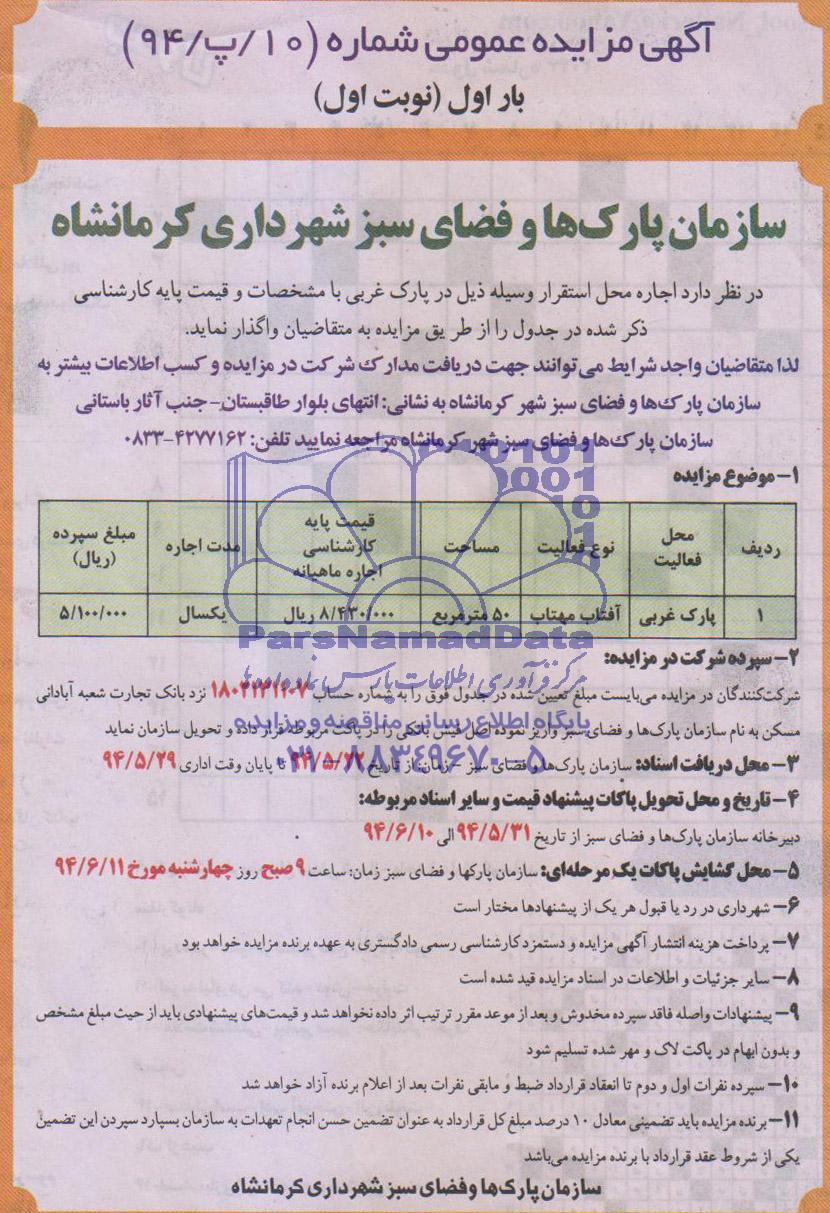 آگهی مزایده عمومی شماره (۱۰/پ/۹۴)
بار اول (نوبت اول)
سازمان پارک‌ها و فضای سبز شهرداری کرمانشاه
در نظر دارد اجاره محل استقرار وسیله ذیل در پارک غربی با مشخصات و قیمت پایه کارشناسی
ذکر شده در جدول را از طریق مزایده به متقاضیان واگذار نماید.
لذا متقاضیان واجد شرایط می‌توانند جهت دریافت مدارک شرکت در مزایده و کسب اطلاعات بیشتر به
سازمان پارک‌ها و فضای سبز شهر کرمانشاه به نشانی: انتهای بلوار طاقبستان- جنب آثار باستانی
سازمان پارک‌ها و فضای سبز شهر کرمانشاه مراجعه نمایید تلفن: ۴۲۷۷۱۶۲-۰۸۳۳
۱- موضوع مزایده
ردیف | محل فعالیت | نوع فعالیت | مساحت | قیمت پایه کارشناسی اجاره ماهیانه | مدت اجاره | مبلغ سپرده (ریال)
۱ | پارک غربی | آفتاب مهتاب | ۵۰ مترمربع | ۸/۴۳۰/۰۰۰ ریال | یکسال | ۵/۱۰۰/۰۰۰
ParsNamadData
۲- سپرده شرکت در مزایده:
مرکز فرآوری اطلاعات پارس نماد داده‌ها
شرکت‌کنندگان در مزایده می‌بایست مبلغ تعیین شده در جدول فوق را به شماره حساب نزد بانک تجارت شعبه آبادانی
پایگاه اطلاع رسانی مناقصه و مزایده
مسکن به نام سازمان پارک‌ها و فضای سبز واریز نموده اصل فیش بانکی را در پاکت مربوطه قرار داده و تحویل سازمان نماید
۰۲۱-۸۸۳۴۹۶۷۰-۵
۳- محل دریافت اسناد: سازمان پارک‌ها و فضای سبز - زمان: از تاریخ ۹۴/۵/۲۲ تا پایان وقت اداری ۹۴/۵/۲۹
۴- تاریخ و محل تحویل پاکات پیشنهاد قیمت و سایر اسناد مربوطه:
دبیرخانه سازمان پارک‌ها و فضای سبز از تاریخ ۹۴/۵/۳۱ الی ۹۴/۶/۱۰
۵- محل گشایش پاکات یک مرحله‌ای: سازمان پارکها و فضای سبز زمان: ساعت ۹ صبح روز چهارشنبه مورخ ۹۴/۶/۱۱
۶- شهرداری در رد یا قبول هر یک از پیشنهادها مختار است
۷- پرداخت هزینه انتشار آگهی مزایده و دستمزد کارشناسی رسمی دادگستری به عهده برنده مزایده خواهد بود
۸- سایر جزئیات و اطلاعات در اسناد مزایده قید شده است
۹- پیشنهادات واصله فاقد سپرده مخدوش و بعد از موعد مقرر ترتیب اثر داده نخواهد شد و قیمت‌های پیشنهادی باید از حیث مبلغ مشخص
و بدون ابهام در پاکت لاک و مهر شده تسلیم شود
۱۰- سپرده نفرات اول و دوم تا انعقاد قرارداد ضبط و مابقی نفرات بعد از اعلام برنده آزاد خواهد شد
۱۱- برنده مزایده باید تضمینی معادل ۱۰ درصد مبلغ کل قرارداد به عنوان تضمین حسن انجام تعهدات به سازمان بسپارد سپردن این تضمین
یکی از شروط عقد قرارداد با برنده مزایده می‌باشد
سازمان پارک‌ها و فضای سبز شهرداری کرمانشاه